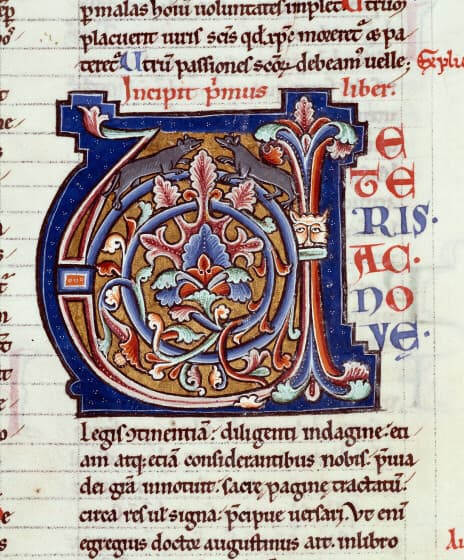 p malas hoīu uoluntates implet Utrum
placuerit uiris scīs qd xp̄c moreret̄ & pa
teret̄ Utrū passiones scōꝝ debeam᾽ uelle;
Incipit p̄mus liber.
V
E
TE
RIS·
AC·
NO
VE·
legis ꝯtinentiā· diligenti indagine· eti
am atq; etiā considerantibus nobis· p̄uia
dei grā innotuit· sacre pagine tractatū·
circa res ul̄ signa· p̄cipue uersari. Vt eni
egregius doctor augustinus ait· in libro